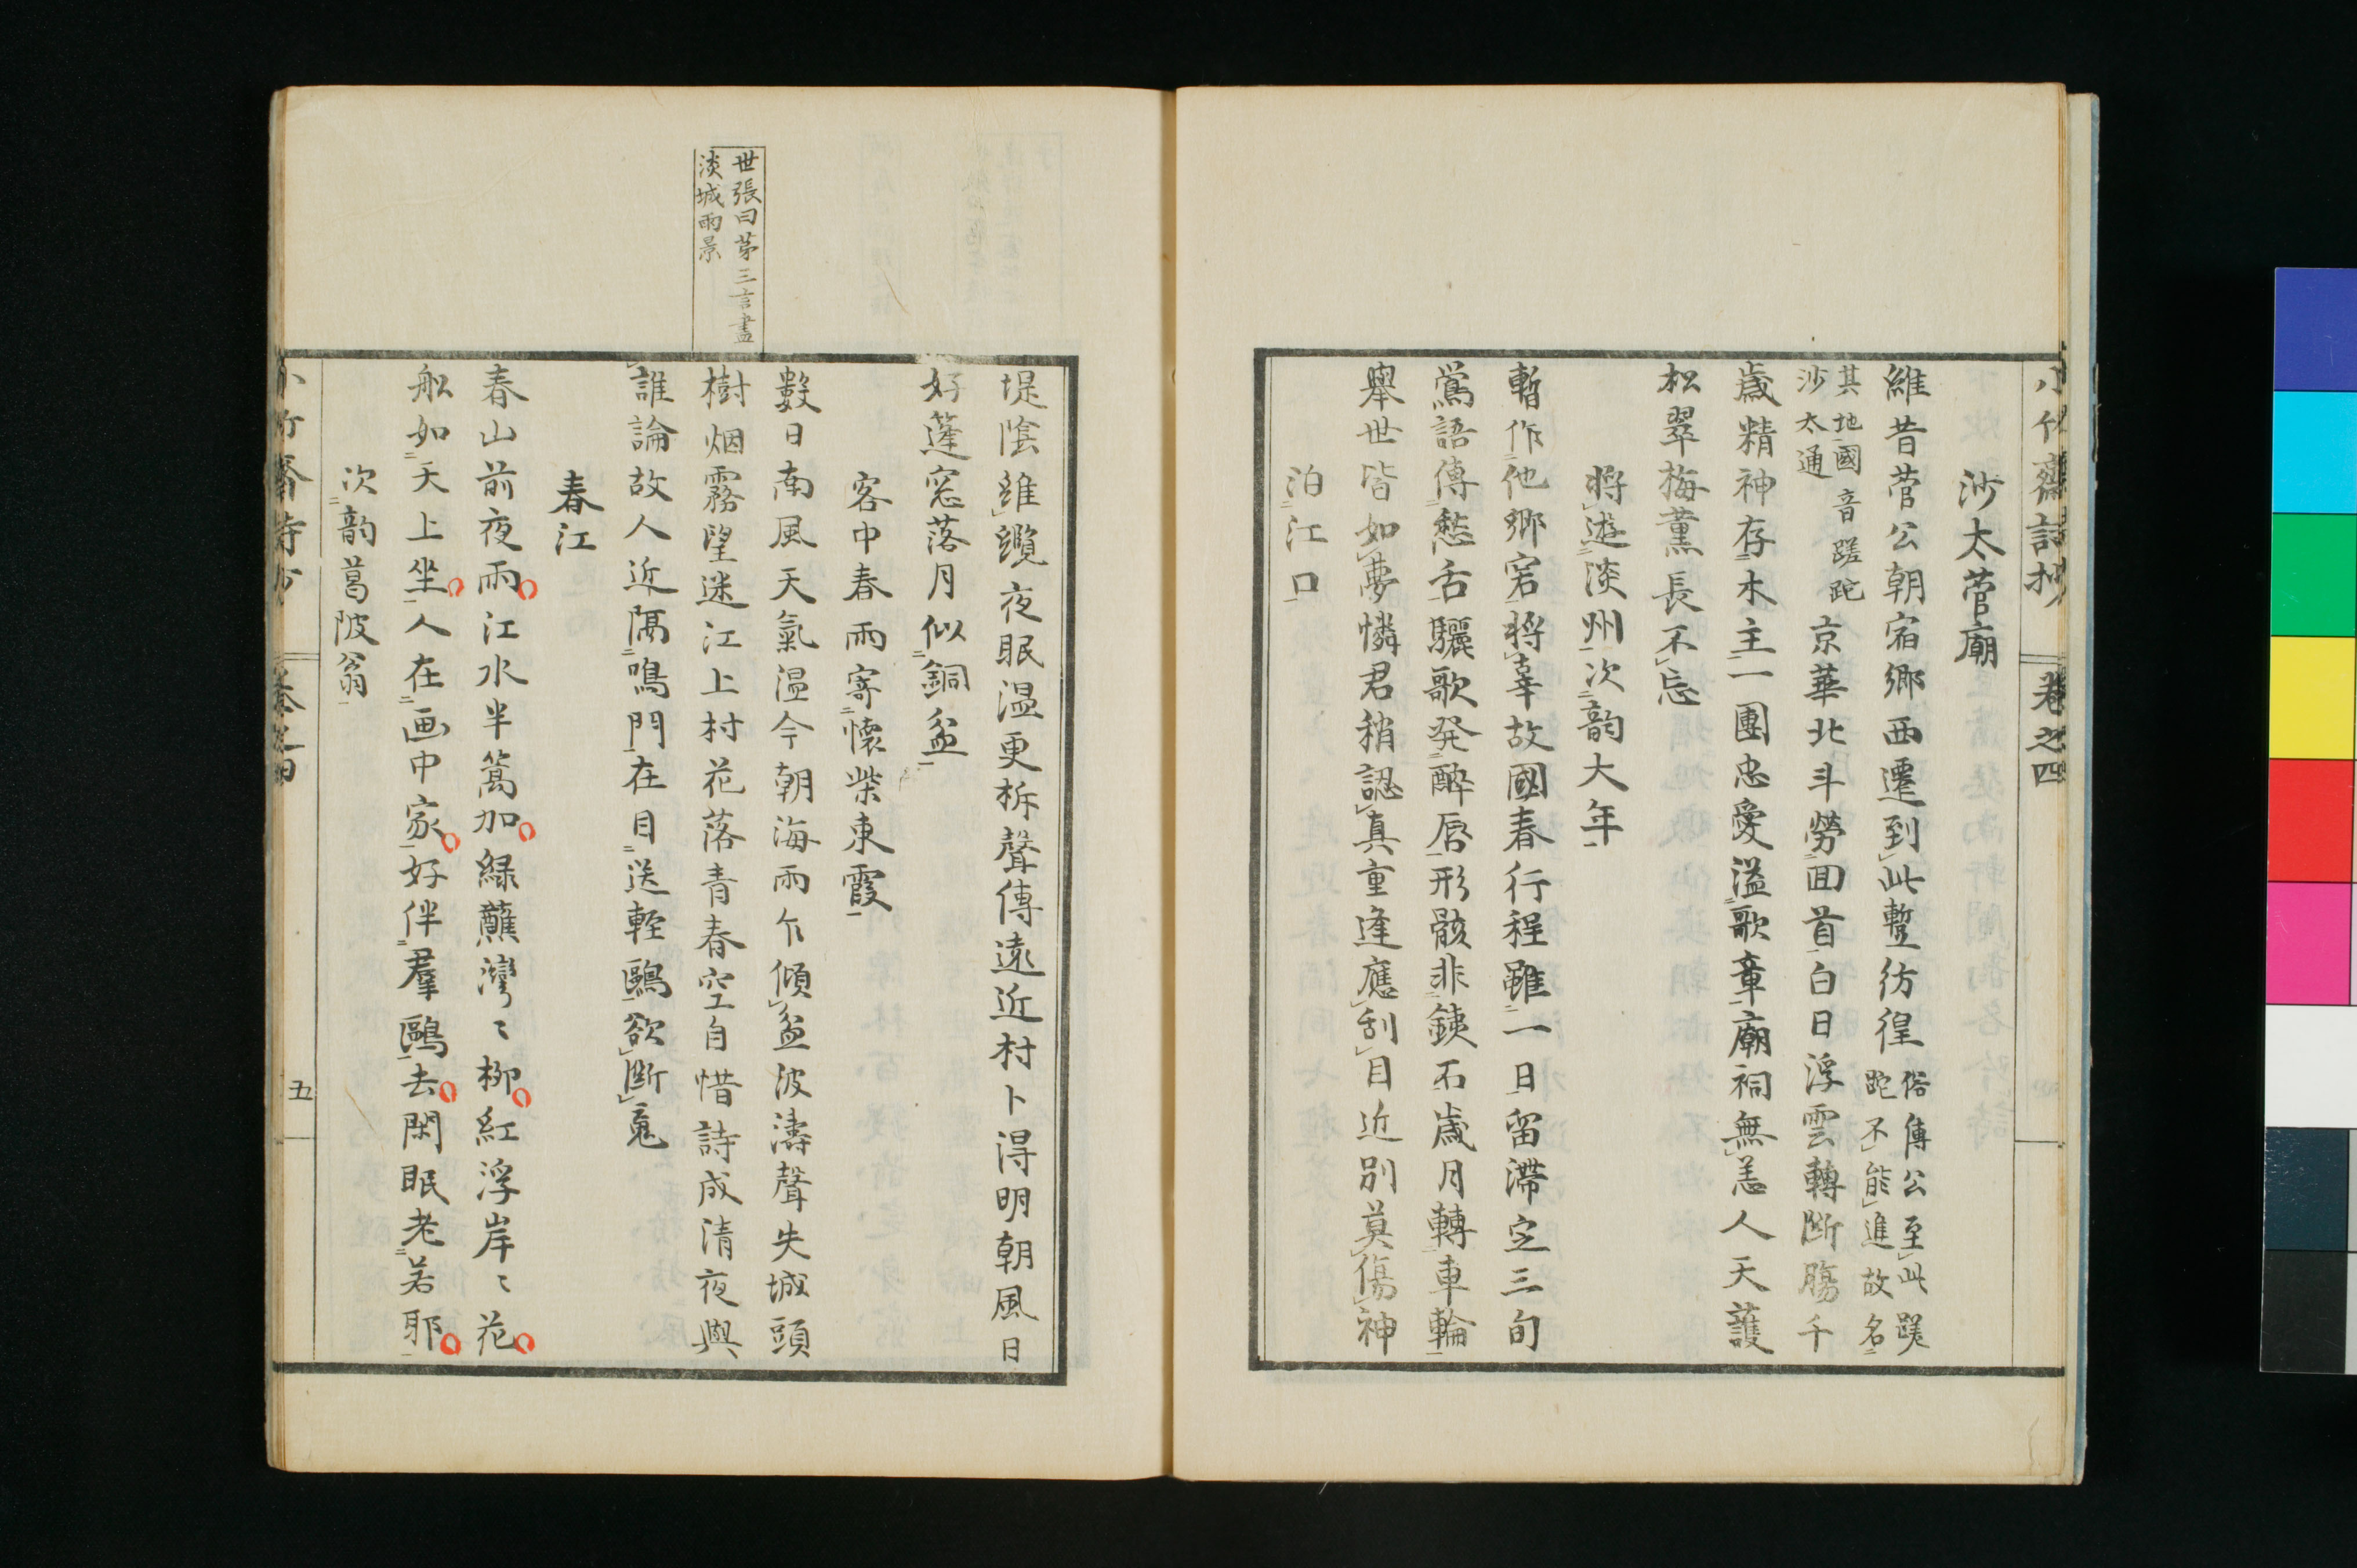 小竹齋詩抄 卷之四
沙太菅廟
維昔菅公朝宿鄉西遷到此蹔彷徨俗傳公至此蹉跎不能進故名
其地國音蹉跎沙太通京華北斗勞囬首白日浮雲轉斷膓千
歲精神存木主一團忠愛溢歌章廟祠無恙人天護
松翠梅薰長不忘
將遊淡州次韵大年
暫作他鄉宕將辜故國春行程雖一日留滯定三旬
鶯語傳愁舌驪歌発醉唇形骸非銕石歲月轉車輪
舉世皆如夢憐君稍認真重逢應刮目近別莫傷神
泊江口
堤陰維纜夜眠温更柝聲傳遠近村卜得明朝風日
好蓬窓落月似銅盆
客中春雨寄懷柴東霞
數日南風天氣温今朝海雨乍傾盆波濤聲失城頭
樹烟霧望迷江上村花落青春空自惜詩成清夜與
誰論故人近隔鳴門在目送輕鷗欲斷䰟
世張曰苐三言盡
淡城雨景
春江
春山前夜雨江水半篙加綠蘸灣〻柳紅浮岸〻花
船如天上坐人在画中家好伴羣鷗去閑眠老若耶
次韵葛陂翁
小竹齋詩抄 卷之四 五